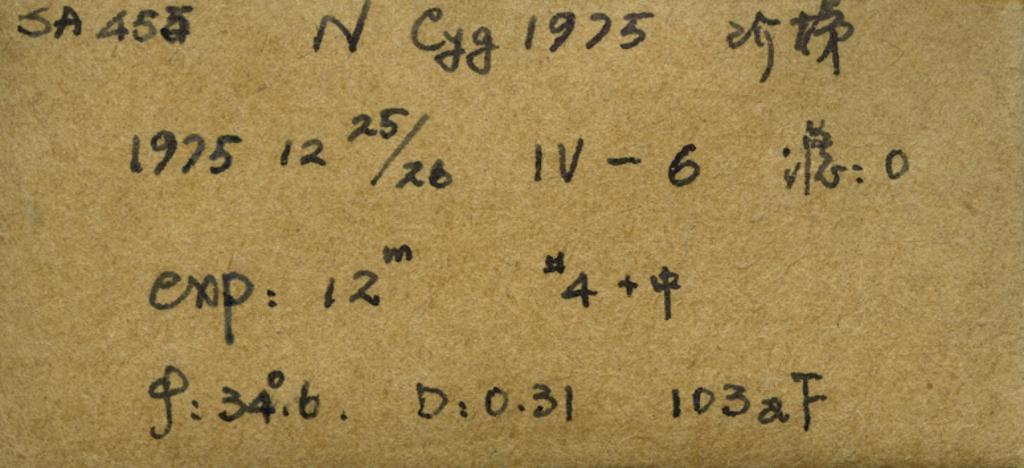 SA 455 N Cyg 1975 阶梯
1975 12 25/26 IV - 6 滤: 0
exp: 12m #4 + 中
φ: 34°.6. D: 0.31 103aF